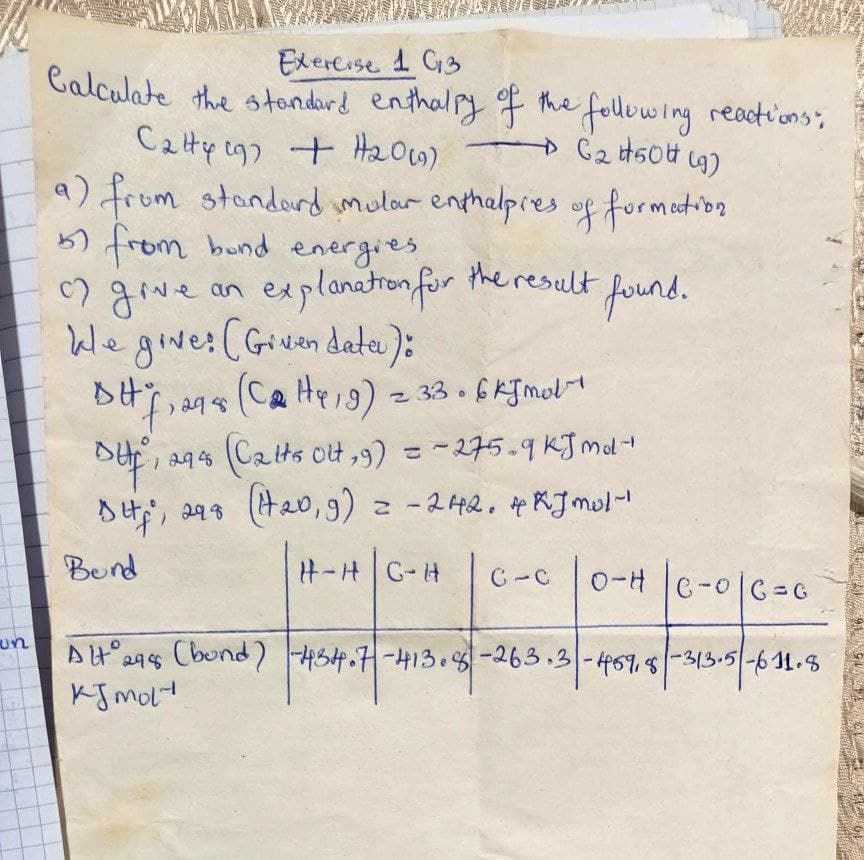 Exercise 1 G3
Calculate the standard enthalpy of the following reactions:
C2H4(g) + H2O(g) → C2H5OH(g)
a) from standard molar enthalpies of formation
b) from bond energies
c) give an explanation for the result found.
We give: (Given data):
ΔH°f, 298 (C2H4,g) = 33.6 KJ mol-1
ΔHf°, 298 (C2H5OH,g) = -275.9 KJ mol-1
ΔHf°, 298 (H20,g) = -242.4 KJ mol-1
Bond H-H C-H C-C O-H C-O C=C
un
ΔH°298 (bond) -434.7 -413.8 -263.3 -459.8 -313.5 -611.8
KJ mol-1